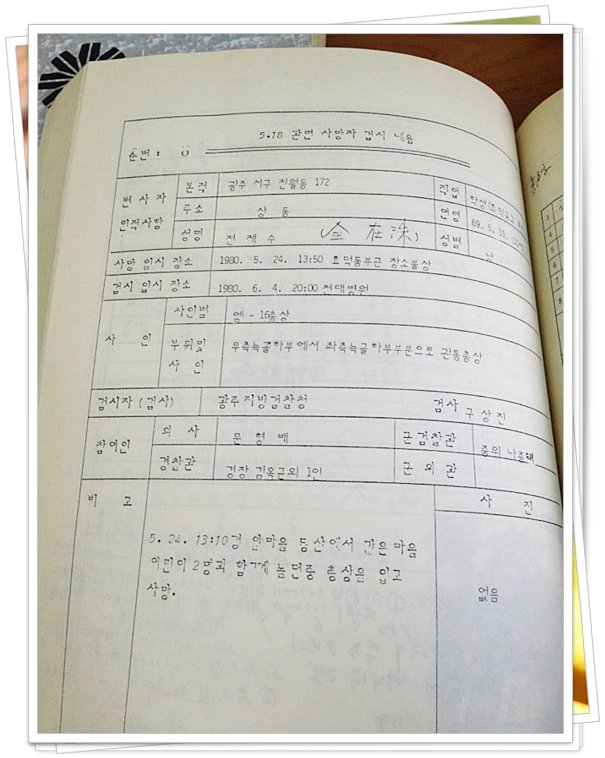 5.18 관련 사망자 검시 내용
순번 :
변 사 자 인적사항
본적 광주 서구 진월동 172
직업
주소 상 동
연령 69. 5. 15.
성명 전 재 수
성별 남
사망 일시 장소 1980. 5. 24. 13:50 효덕동부근 장소불상
검시 일시 장소 1980. 6. 4. 20:00 전대병원
사 인
사인별 엠 - 16총상
부위및 사 인 우측늑골하부에서 좌측늑골하부부분으로 관통총상
검시자 (검사) 광주지방검찰청 검사 구상진
참여인
의 사 문 형 배
군검찰관 중위
경찰관 경장 김옥균외 1인
군 의 관
비 고
사 진
5. 24. 13:10경 앞마을 동산에서 같은 마을
어린이 2명과 함께 놀던중 총상을 입고
사망.
없음